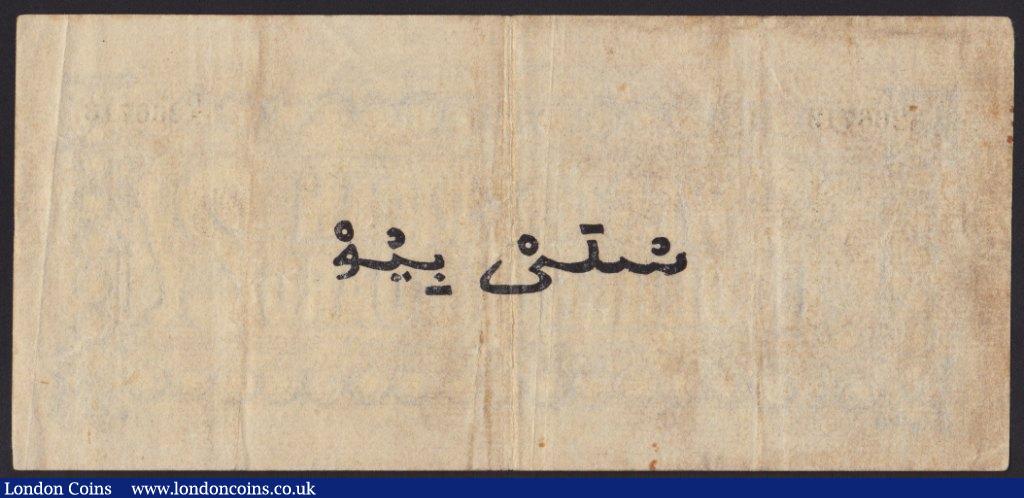 سُلَىْ بِيُوْ
London Coins www.londoncoins.co.uk